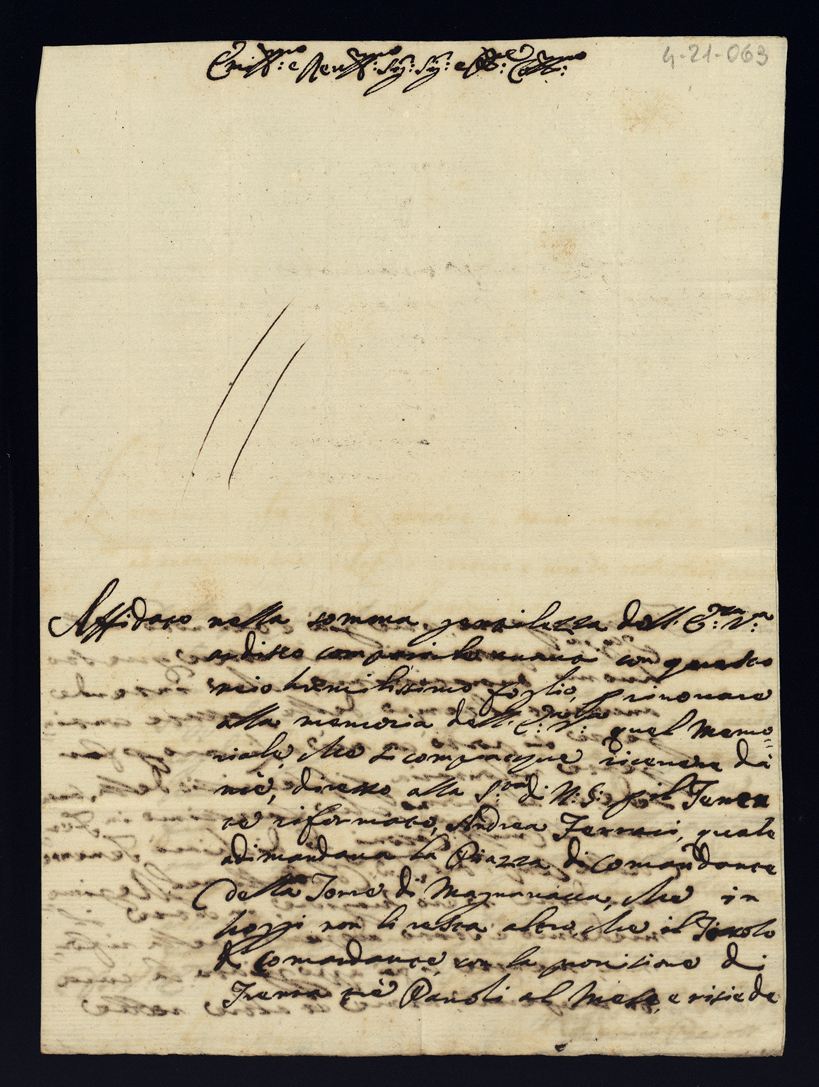 4-21-063
Em̃o: e Reuũ: Sig: Sig: e P̃ñe: Coll̃:
Affidato nella somma gentilezza dell: E: V:
ardisco comparirle avanti con questo
mio humilissimo foglio, p rinouare
alla memoria dell: E: V: quel Memo=
riale, che si compiacque riceuere da
mè, diretto alla S.tà di N: S: p il Tenen
te riformato, Andrea Ferrari, quale
adimandaua la Piazza di Comandante
della Torre di Magnauacca, che in
hoggi non li resta altro che il Titolo
di Comandante, con la prouisione di
Trenta trè Pauoli al Mese, e risiede